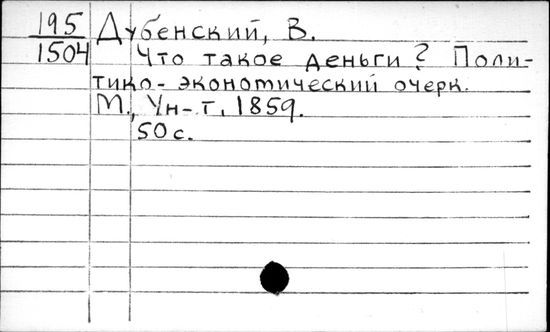 195 Дубенский, В.
1504 Что такое деньги? Поли-
тико-экономический очерк.
М., Ун-т, 1859.
50 с.